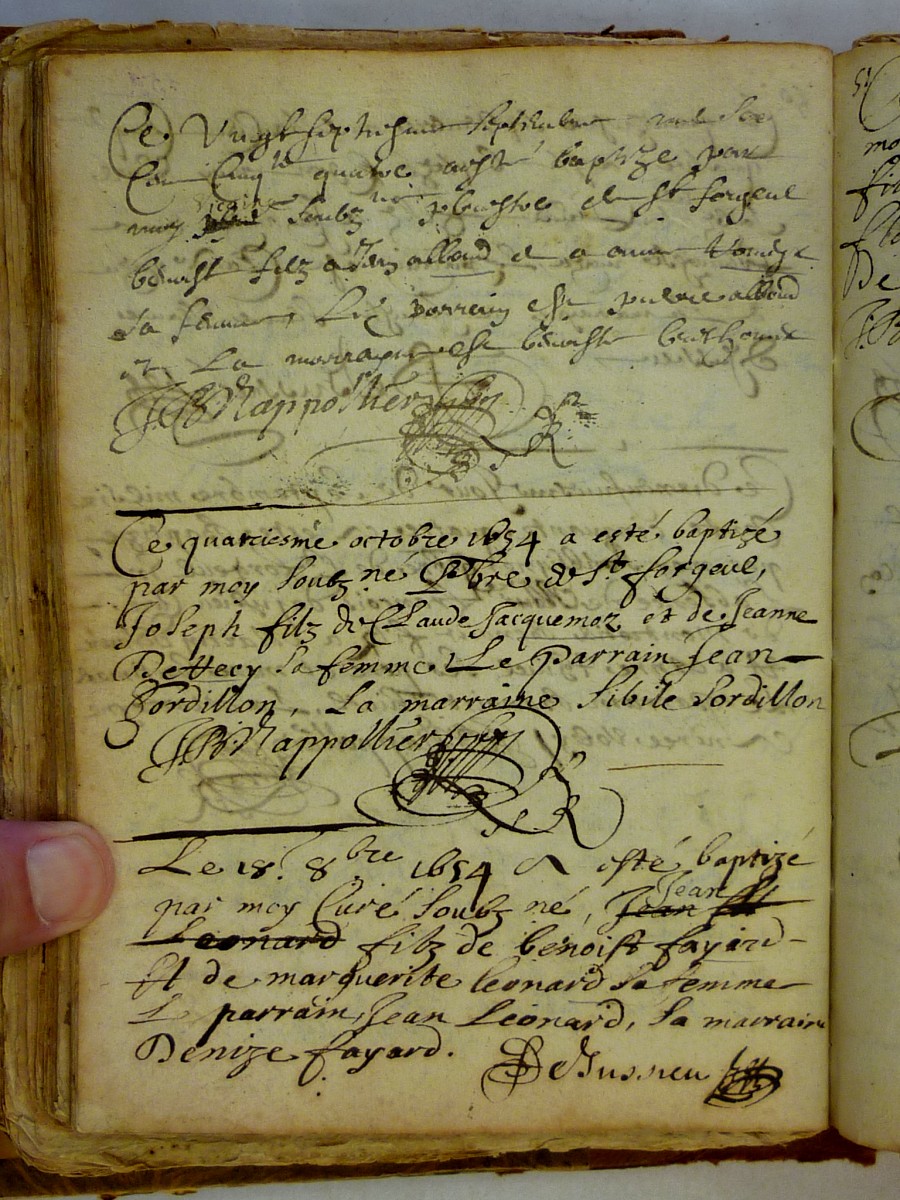 Ce Vingt septiesme septembre mil six
Cen Cinq.te quatre a esté baptize par
moy vicaire soubz né pbrestre de st forgeul
benoist filz a Jan alloud et a anne
sa femme, Le parrein est pierre alloud
et La marrayne est benoiste
JBNappollier
Ce quatriesme octobre 1654 a esté baptizé
par moy soubz né Pbre de St forgeul,
Joseph filz de Claude Jacquemoz et de Jeanne
Bettecy sa femme Le parrain Jean
Sordillon, La marraine Sibile Sordillon
JBNappollier
Le 18.e 8bre 1654 A esté baptizé
par moy Curé soubz né, Jean Jean fil
Leonard filz de benoist fayard
Et de marguerite leonard sa femme
L parrain, Jean Leonard, la marraine
Denize fayard.
DeJussieu